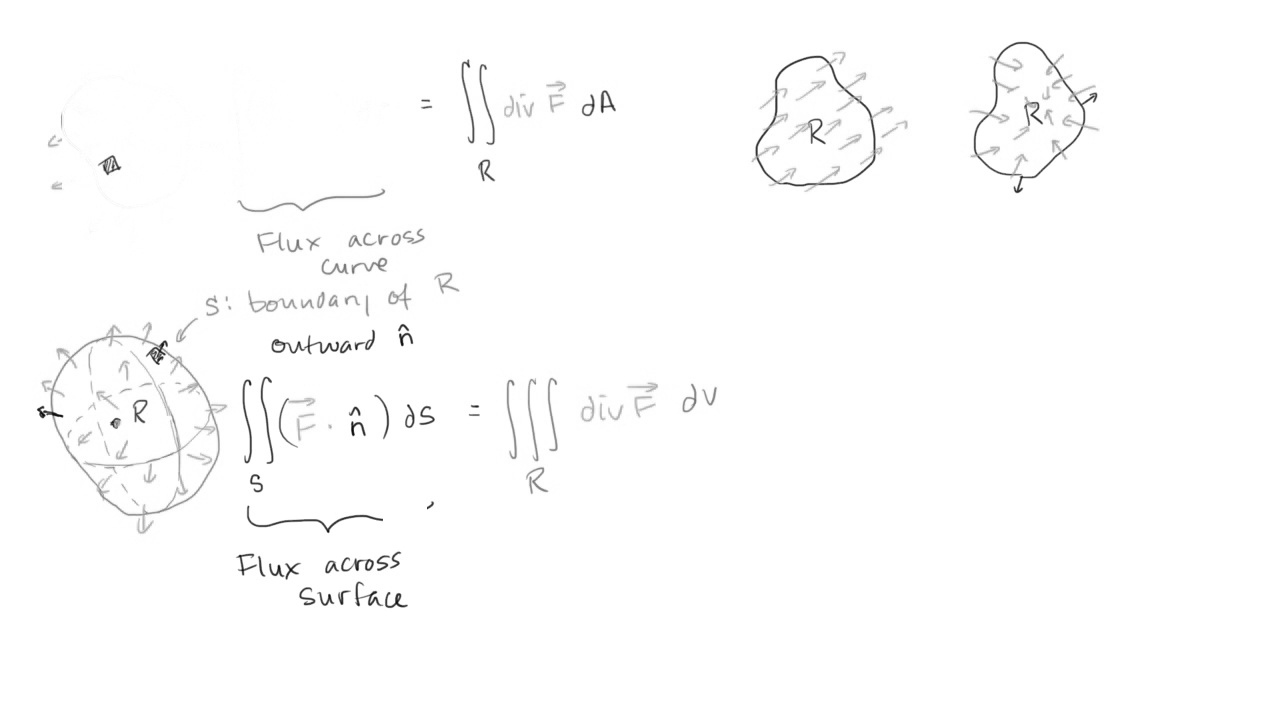 = ∬ div F⃗ dA
R
R
R
Flux across
curve
S: boundary of R
outward n̂
R
∬ (F⃗ · n̂) dS = ∭ div F⃗ dV
S
R
Flux across
surface